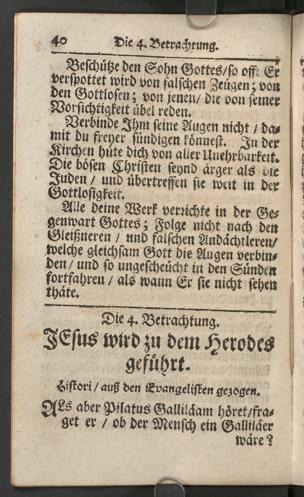 40 Die 4. Betrachtung.
Beschütze den Sohn Gottes/so offt Er
verspottet wird von falschen Zeugen; von
den Gottlosen; von jenen/ die von seiner
Vorsichtigkeit übel reden.
Verbinde Ihm seine Augen nicht / da-
mit du freyer sündigen könnest. In der
Kirchen hüte dich von aller Unehrbarkeit.
Die bösen Christen seynd ärger als die
Juden / und übertreffen sie weit in der
Gottlosigkeit.
Alle deine Werk verrichte in der Ge-
genwart Gottes; Folge nicht nach den
Gleißneren / und falschen Andächtleren/
welche gleichsam Gott die Augen verbin-
den / und so ungescheücht in den Sünden
fortfahren / als wann Er sie nicht sehen
thäte.
Die 4. Betrachtung.
JEsus wird zu dem Herodes
geführt.
Histori / auß den Evangelisten gezogen.
ALs aber Pilatus Galliläam höret/fra-
get er / ob der Mensch ein Galliläer
wäre?